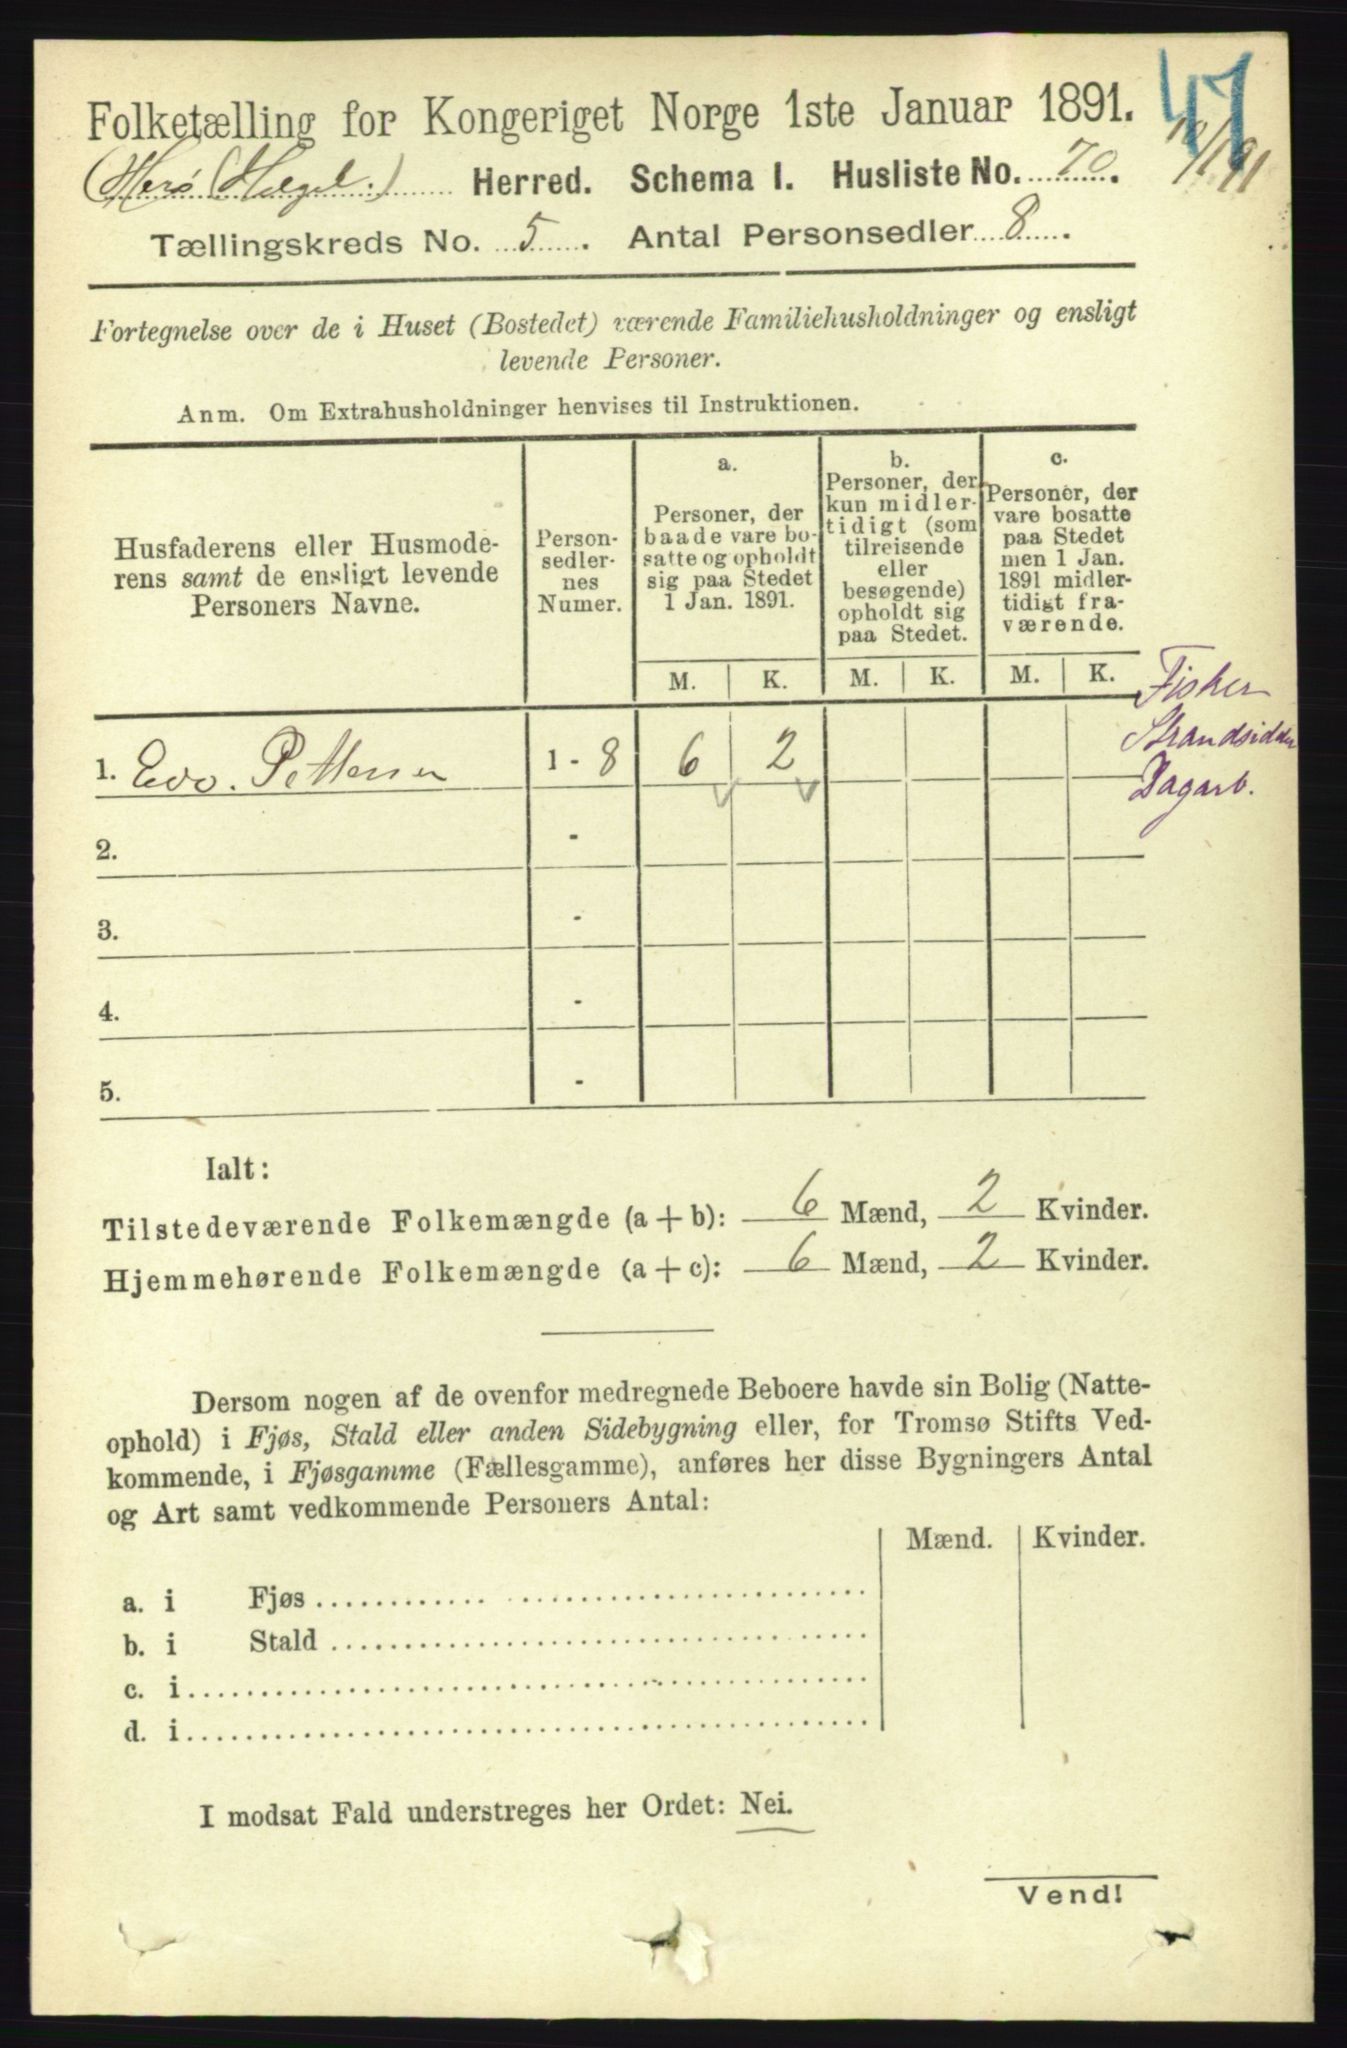 47
Folketælling for Kongeriget Norge 1ste Januar 1891.
Herø (Helgel.) Herred. Schema I. Husliste No. 70.
Tællingskreds No. 5. Antal Personsedler 8.
Fortegnelse over de i Huset (Bostedet) værende Familiehusholdninger og ensligt
levende Personer.
Anm. Om Extrahusholdninger henvises til Instruktionen.
Husfaderens eller Husmode-
rens samt de ensligt levende
Personers Navne.
Person-
sedler-
nes
Numer.
a.
Personer, der
baade vare bo-
satte og opholdt
sig paa Stedet
1 Jan. 1891.
b.
Personer, der
kun midler-
tidigt (som
tilreisende
eller
besøgende)
opholdt sig
paa Stedet.
c.
Personer, der
vare bosatte
paa Stedet
men 1 Jan.
1891 midler-
tidigt fra-
værende.
M. K. M. K. M. K.
Fisker
Strandsidder
Dagarb.
1. Pettersen 1 - 8 6 2
2. -
3. -
4. -
5. -
Ialt:
Tilstedeværende Folkemængde (a + b): 6 Mænd, 2 Kvinder.
Hjemmehørende Folkemængde (a + c): 6 Mænd, 2 Kvinder.
Dersom nogen af de ovenfor medregnede Beboere havde sin Bolig (Natte-
ophold) i Fjøs, Stald eller anden Sidebygning eller, for Tromsø Stifts Ved-
kommende, i Fjøsgamme (Fællesgamme), anføres her disse Bygningers Antal
og Art samt vedkommende Personers Antal:
Mænd. Kvinder.
a. i Fjøs
b. i Stald
c. i
d. i
I modsat Fald understreges her Ordet: Nei.
Vend!